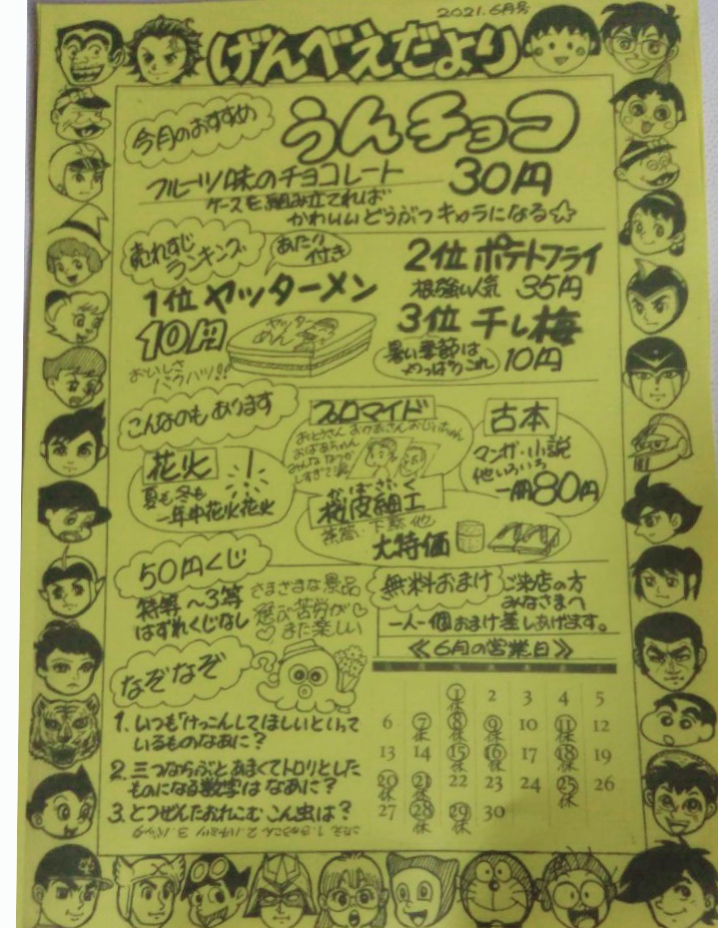 2021.6月号
げんべえだより
今月のおすすめ
うんチョコ
フルーツ味のチョコレート 30円
ケースを組み立てれば
かわいいどうぶつキャラになる☆
売れすじ
ランキング
あたり
付き
1位 ヤッターメン
10円
ヤッター
めん
おいしさ
バクハツ!!
2位 ポテトフライ
根強い人気 35円
3位 干し梅
暑い季節は
やっぱりこれ 10円
こんなのもあります
花火
夏も冬も
一年中花火花火
ブロマイド
おとうさん おかあさん おじいちゃん
おばあちゃん
みんななつか
しすぎて涙
古本
マンガ・小説
他いろいろ
一冊80円
かばざいく
樺皮細工
茶筒・下駄他
大特価
50円くじ
特等～3等
はずれくじなし
さまざまな景品
選ぶ苦労が
また楽しい
無料おまけ
ご来店の方
みなさまへ
一人一個おまけ差しあげます。
≪6月の営業日≫
1 2 3 4 5
休
6 7 8 9 10 11 12
休 休 休 休
13 14 15 16 17 18 19
休 休 休
20 21 22 23 24 25 26
休 休 休
27 28 29 30
休 休
なぞなぞ
1. いつも「けっこんしてほしい」といって
いるものなあに?
2. 三つならぶとあまくてトロリとした
ものになる数字はなあに?
3. とつぜんたおれこむこん虫は?